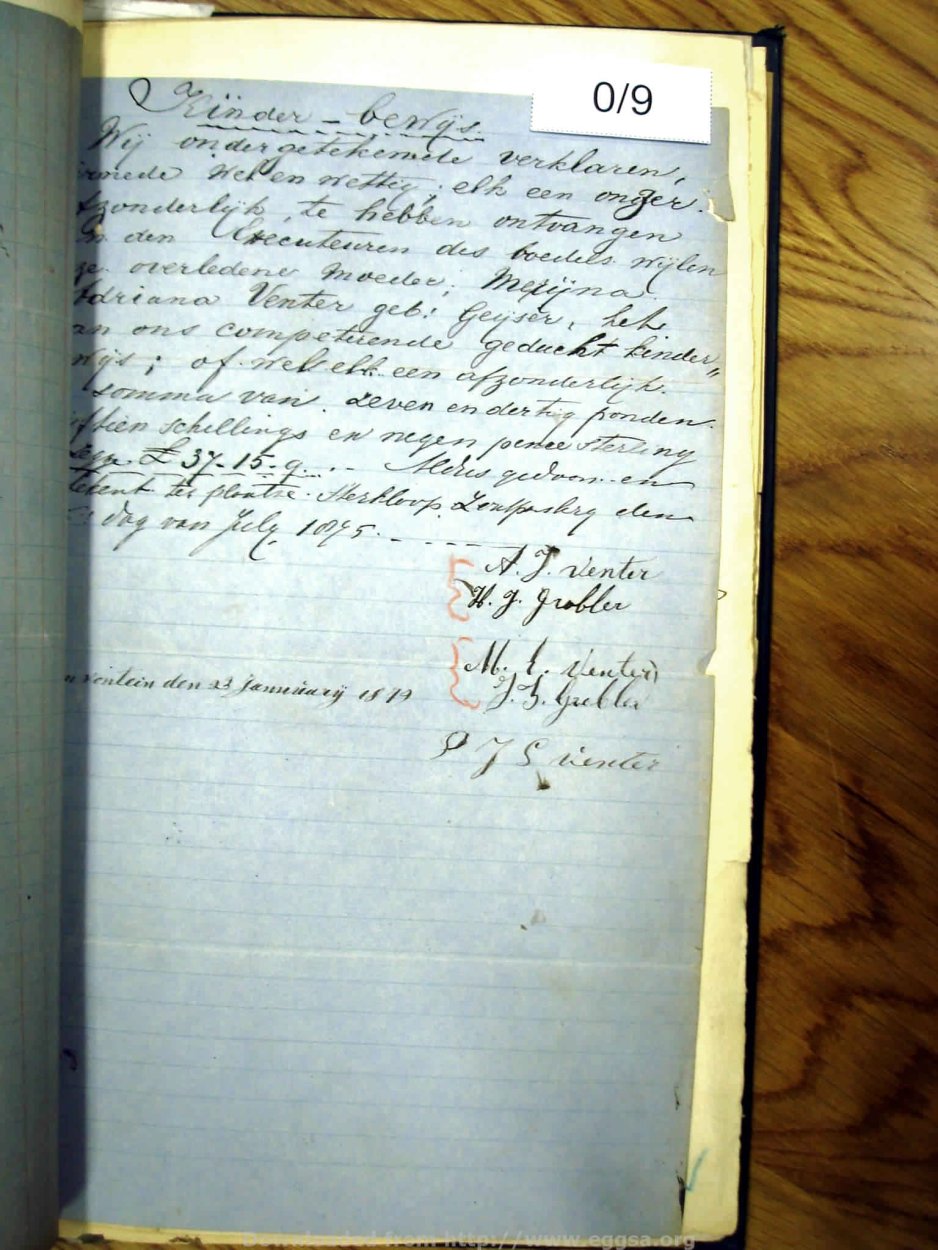 0/9
Kinder-bewÿs.
Wij ondergetekende verklaren,
mede wel en wettig, elk een onzer
afzonderlijk, te hebben ontvangen
den Executeuren des boedels wijlen
ze overledene moeder; Mexijna
Adriana Venter geb: Geyser, het
an ons competeerende gedacht kinder„
wijs; of wel elk een afzonderlijk.
somma van zeven en dertig ponden
ftien schillings en negen pence sterling
£ 37-15-9... Aldus gedaan en
tekent ter plaatse Sterkloop Zoutpansberg den
dag van July 1875
A. J. Venter
H. J. Grobler
M. E. Venter
J. S. Grobler
fontein den 23 januuarij 1879
P J S Venter
Downloaded from http://www.eggsa.org